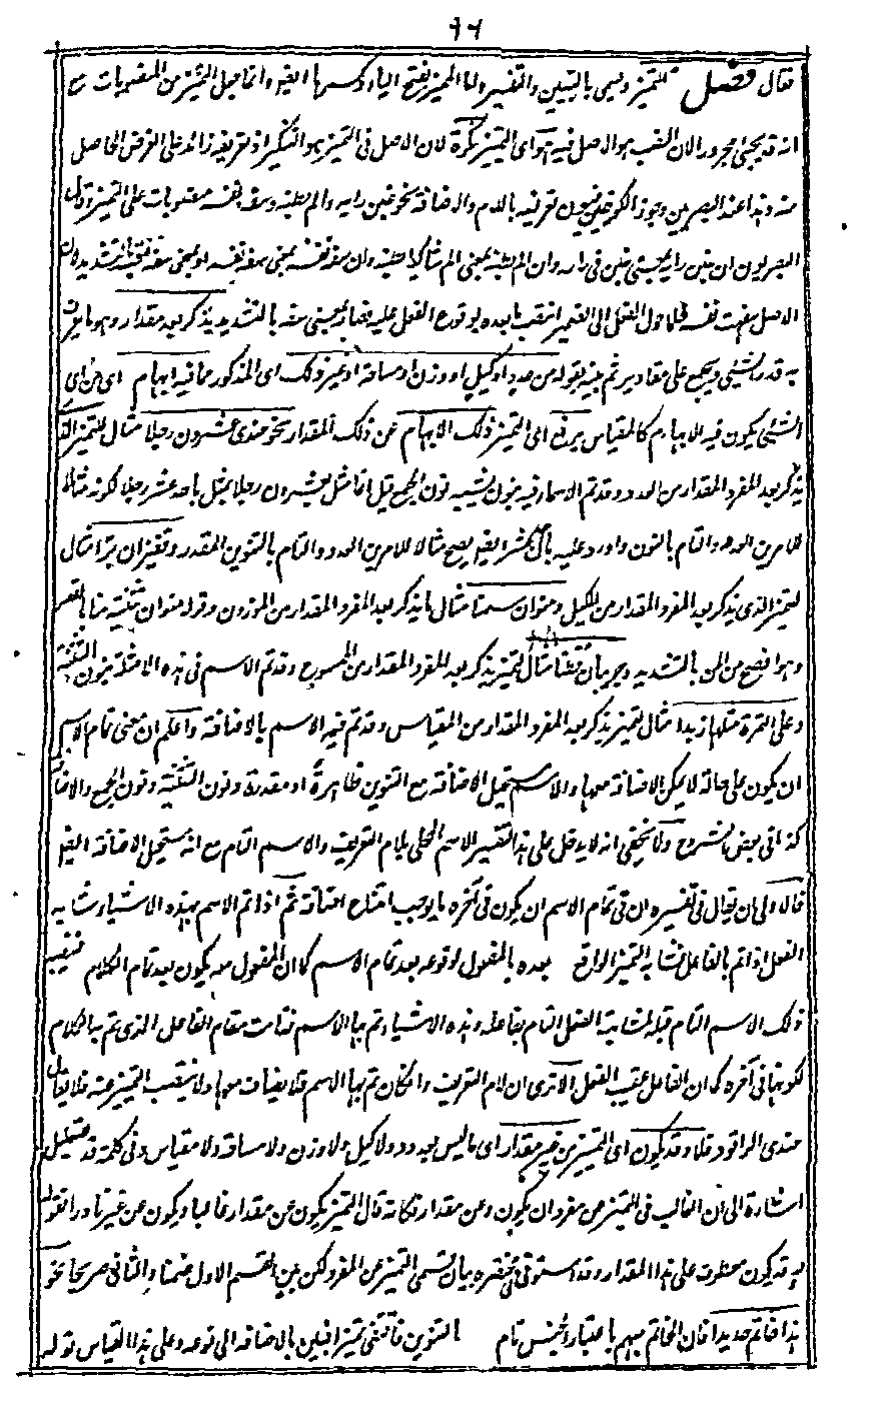 ٩٩
قال فصل التميز ويسمى بالتبيين والتفسير والمميز بفتح الياء وكسرها ايضا وانما جعل التميز من المنصوبات مع
انه قد يجئ مجرورا لان النصب هو الاصل فيه هو اى التميز نكرة لان الاصل فى التميز هو التنكير اذ تعريفه زائد على الغرض الحاصل
منه وهذا عند البصريين وجوز الكوفيون تعريفه باللام والاضافة نحو غبن رايه والم بطنه وسفه نفسه منصوبات على التميز وقال
البصريون ان غبن رايه بمعنى غبن فى رايه وان الم بطنه بمعنى الم شاكيا بطنه وان سفه نفسه بمعنى سفه نفسه او بمعنى سفه
الاصل سفهت نفسه فلما حول الفعل الى الضمير انتصب ما بعده بوقوع الفعل عليه بمعنى سفه بالتشديد يذكر بعد مقدار وهو ما يعرف
به قدر الشئ ويجمع على مقادير ثم بينه بقوله من عدد او كيل او وزن او مساحة او غير ذلك اى المذكور مما فيه ابهام اى من اى
الشئ يكون فيه الابهام كالمقياس يرفع اى التميز ذلك الابهام عن ذلك المقدار نحو عندى عشرون رجلا مثال للتميز الذى
يذكر بعد المفرد المقدار من العدد وقد تم الاسم فيه بنون يشبه نون الجمع قيل انما مثل بعشرين رجلا ولم يمثل باحد عشر رجلا لكونه مثالا
للامرين العدد والتام بالنون واورد عليه بان احد عشر ايضا يصح مثالا للامرين العدد والتام بالتنوين المقدر وقفيزان برا مثال
لتميز الذى يذكر بعد المفرد المقدار من الكيل ومنوان سمنا مثال ما يذكر بعد المفرد المقدار من الموزون وقوله منوان تثنية منا بالقصر
وهو افصح من المن بالتشديد وجريبان قطنا مثال لتميز يذكر بعد المفرد المقدار من الممسوح وقد تم الاسم فى هذه الامثلة بنون التثنية
وعلى التمرة مثلها زبدا مثال لتميز يذكر بعد المفرد المقدار من المقياس وقد تم فيه الاسم بالاضافة واعلم ان معنى تمام الاسم
ان يكون على حالة لا يمكن الاضافة معها والاسم مستحيل الاضافة مع التنوين ظاهرة او مقدرة ونون التثنية ونون الجمع والاضافة
كذا فى بعض الشروح ولا يخفى انه لا يدخل على هذا التفسير الاسم المحلى بلام التعريف والاسم التام مع انه مستحيل الاضافة ايضا
فالاولى ان يقال فى تفسيره ان تمام الاسم ان يكون فى آخره ما يوجب امتناع اضافته ثم اذا تم الاسم بهذه الاشياء شابه
الفعل اذا تم بالفاعل فشابه التميز الواقع بعده بالمفعول لوقوعه بعد تمام الاسم كما ان المفعول به يكون بعد تمام الكلام فينصبه
ذلك الاسم التام قبله لمشابهة الفعل التام بفاعله وهذه الاشياء تم بها الاسم قامت مقام الفاعل الذى تم به الكلام
لكونها فى آخره كما ان الفاعل عقيب الفعل الا ترى ان لام التعريف وان كان تم بها الاسم فلا يضاف معها ولا ينتصب التميز عنه فلا يقال
عندى الراقود خلا وقد يكون اى التميز من غير مقدار اى ما ليس بعدد ولا كيل ولا وزن ولا مساحة ولا مقياس وفى كلمة قد تقليل
اشارة الى ان الغالب فى التميز عن مفرد ان يكون عن مقدار فكانه قال التميز يكون عن مقدار غالبا ويكون عن غيره نادرا فقوله
قد يكون معطوف على هذا المقدار وقد استوفى المختصر بيان قسمى التميز عن المفرد لكن بين القسم الاول ضمنا والثانى صريحا نحو
هذا خاتم حديدا فان الخاتم مبهم باعتبار الجنس تام التنوين فاقتضى تميزا قبلين بالاضافة الى نوعه وعلى هذا القياس قوله